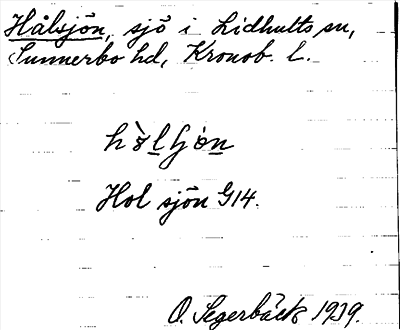 Hålsjön, sjö i Lidhults sn,
Sunnerbo hd, Kronob. l.
Hol sjön G14.
O. Segerbäck 1939.